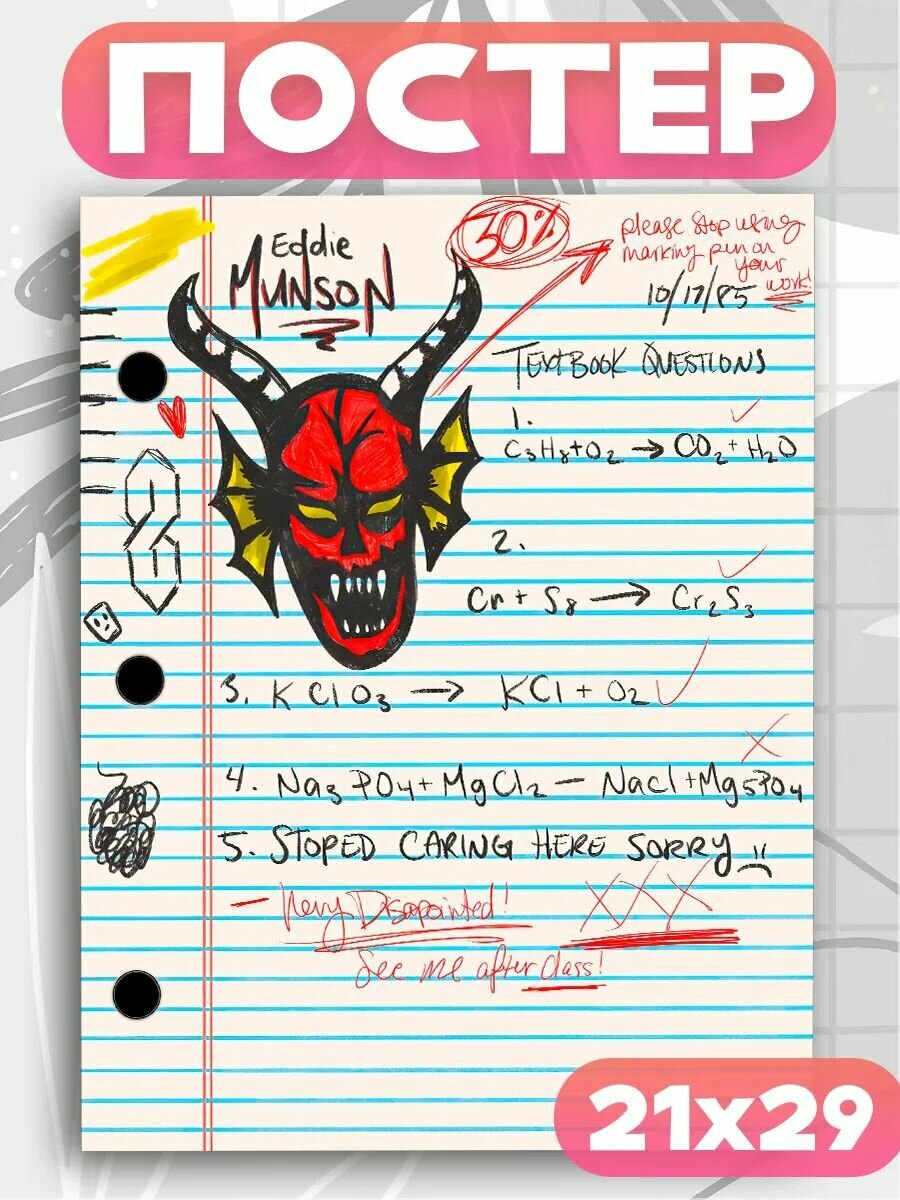 ПОСТЕР
Eddie
MUNSON
30%
please stop using
marking pen on
your
work!
10/17/85
TEXTBOOK QUESTIONS
1.
C₃H₈+O₂ → CO₂+H₂O
2.
Cr + S₈ → Cr₂S₃
3. KClO₃ → KCl + O₂
4. Na₃PO₄+MgCl₂ — NaCl+Mg₅PO₄
5. STOPED CARING HERE SORRY
- Very Disapointed! XXX
See me after class!
21x29